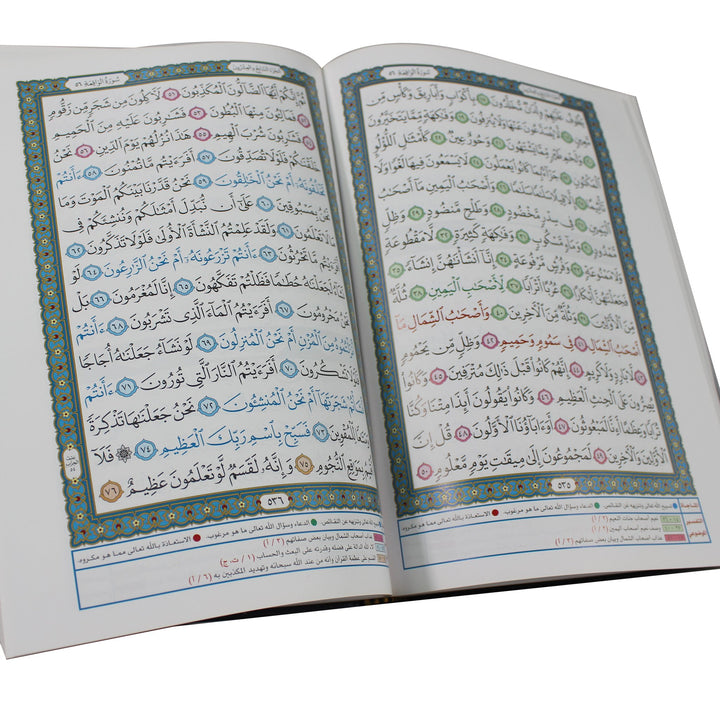 سُورَةُ الوَاقِعَةِ ٥٦
يَطُوفُ عَلَيْهِمْ وِلْدَٰنٌ مُّخَلَّدُونَ ١٧ بِأَكْوَابٍ وَأَبَارِيقَ وَكَأْسٍ مِّن
مَّعِينٍ ١٨ لَّا يُصَدَّعُونَ عَنْهَا وَلَا يُنزِفُونَ ١٩ وَفَٰكِهَةٍ مِّمَّا يَتَخَيَّرُونَ
٢٠ وَلَحْمِ طَيْرٍ مِّمَّا يَشْتَهُونَ ٢١ وَحُورٌ عِينٌ ٢٢ كَأَمْثَٰلِ ٱللُّؤْلُوِٕ
ٱلْمَكْنُونِ ٢٣ جَزَآءًۢ بِمَا كَانُوا۟ يَعْمَلُونَ ٢٤ لَا يَسْمَعُونَ فِيهَا لَغْوًا وَلَا
تَأْثِيمًا ٢٥ إِلَّا قِيلًا سَلَٰمًا سَلَٰمًا ٢٦ وَأَصْحَٰبُ ٱلْيَمِينِ مَآ أَصْحَٰبُ
ٱلْيَمِينِ ٢٧ فِى سِدْرٍ مَّخْضُودٍ ٢٨ وَطَلْحٍ مَّنضُودٍ ٢٩ وَظِلٍّ
مَّمْدُودٍ ٣٠ وَمَآءٍ مَّسْكُوبٍ ٣١ وَفَٰكِهَةٍ كَثِيرَةٍ ٣٢ لَّا مَقْطُوعَةٍ
وَلَا مَمْنُوعَةٍ ٣٣ وَفُرُشٍ مَّرْفُوعَةٍ ٣٤ إِنَّآ أَنشَأْنَٰهُنَّ إِنشَآءً ٣٥
فَجَعَلْنَٰهُنَّ أَبْكَارًا ٣٦ عُرُبًا أَتْرَابًا ٣٧ لِّأَصْحَٰبِ ٱلْيَمِينِ ٣٨ ثُلَّةٌ
مِّنَ ٱلْأَوَّلِينَ ٣٩ وَثُلَّةٌ مِّنَ ٱلْءَاخِرِينَ ٤٠ وَأَصْحَٰبُ ٱلشِّمَالِ مَآ
أَصْحَٰبُ ٱلشِّمَالِ ٤١ فِى سَمُومٍ وَحَمِيمٍ ٤٢ وَظِلٍّ مِّن يَحْمُومٍ
٤٣ لَّا بَارِدٍ وَلَا كَرِيمٍ ٤٤ إِنَّهُمْ كَانُوا۟ قَبْلَ ذَٰلِكَ مُتْرَفِينَ ٤٥ وَكَانُوا۟
يُصِرُّونَ عَلَى ٱلْحِنثِ ٱلْعَظِيمِ ٤٦ وَكَانُوا۟ يَقُولُونَ أَئِذَا مِتْنَا وَكُنَّا
تُرَابًا وَعِظَٰمًا أَءِنَّا لَمَبْعُوثُونَ ٤٧ أَوَءَابَآؤُنَا ٱلْأَوَّلُونَ ٤٨ قُلْ إِنَّ
ٱلْأَوَّلِينَ وَٱلْءَاخِرِينَ ٤٩ لَمَجْمُوعُونَ إِلَىٰ مِيقَٰتِ يَوْمٍ مَّعْلُومٍ ٥٠
٥٣٥
تسبيح الله تعالى وتنزيهه عن النقائص. الدعاء وسؤال الله تعالى ما هو مرغوب. الاستعاذة بالله تعالى مما هو مكروه.
نعيم أصحاب جنات النعيم (١/أ)
نعيم أصحاب اليمين (٢/أ)
عذاب أصحاب الشمال وبيان بعض صفاتهم (٢/أ)
الجزء السابع والعشرون
سُورَةُ الوَاقِعَةِ ٥٦
ثُمَّ إِنَّكُمْ أَيُّهَا ٱلضَّآلُّونَ ٱلْمُكَذِّبُونَ ٥١ لَءَاكِلُونَ مِن شَجَرٍ مِّن زَقُّومٍ
٥٢ فَمَالِـُٔونَ مِنْهَا ٱلْبُطُونَ ٥٣ فَشَٰرِبُونَ عَلَيْهِ مِنَ ٱلْحَمِيمِ
٥٤ فَشَٰرِبُونَ شُرْبَ ٱلْهِيمِ ٥٥ هَٰذَا نُزُلُهُمْ يَوْمَ ٱلدِّينِ ٥٦ نَحْنُ
خَلَقْنَٰكُمْ فَلَوْلَا تُصَدِّقُونَ ٥٧ أَفَرَءَيْتُم مَّا تُمْنُونَ ٥٨ ءَأَنتُمْ
تَخْلُقُونَهُۥٓ أَمْ نَحْنُ ٱلْخَٰلِقُونَ ٥٩ نَحْنُ قَدَّرْنَا بَيْنَكُمُ ٱلْمَوْتَ وَمَا
نَحْنُ بِمَسْبُوقِينَ ٦٠ عَلَىٰٓ أَن نُّبَدِّلَ أَمْثَٰلَكُمْ وَنُنشِئَكُمْ فِى
مَا لَا تَعْلَمُونَ ٦١ وَلَقَدْ عَلِمْتُمُ ٱلنَّشْأَةَ ٱلْأُولَىٰ فَلَوْلَا تَذَكَّرُونَ ٦٢
أَفَرَءَيْتُم مَّا تَحْرُثُونَ ٦٣ ءَأَنتُمْ تَزْرَعُونَهُۥٓ أَمْ نَحْنُ ٱلزَّٰرِعُونَ ٦٤
لَوْ نَشَآءُ لَجَعَلْنَٰهُ حُطَٰمًا فَظَلْتُمْ تَفَكَّهُونَ ٦٥ إِنَّا لَمُغْرَمُونَ ٦٦ بَلْ
نَحْنُ مَحْرُومُونَ ٦٧ أَفَرَءَيْتُمُ ٱلْمَآءَ ٱلَّذِى تَشْرَبُونَ ٦٨ ءَأَنتُمْ
أَنزَلْتُمُوهُ مِنَ ٱلْمُزْنِ أَمْ نَحْنُ ٱلْمُنزِلُونَ ٦٩ لَوْ نَشَآءُ جَعَلْنَٰهُ أُجَاجًا
فَلَوْلَا تَشْكُرُونَ ٧٠ أَفَرَءَيْتُمُ ٱلنَّارَ ٱلَّتِى تُورُونَ ٧١ ءَأَنتُمْ
أَنشَأْتُمْ شَجَرَتَهَآ أَمْ نَحْنُ ٱلْمُنشِـُٔونَ ٧٢ نَحْنُ جَعَلْنَٰهَا تَذْكِرَةً
وَمَتَٰعًا لِّلْمُقْوِينَ ٧٣ فَسَبِّحْ بِٱسْمِ رَبِّكَ ٱلْعَظِيمِ ٧٤ ۞ فَلَآ
أُقْسِمُ بِمَوَٰقِعِ ٱلنُّجُومِ ٧٥ وَإِنَّهُۥ لَقَسَمٌ لَّوْ تَعْلَمُونَ عَظِيمٌ ٧٦
٥٣٦
الدعاء وسؤال الله تعالى ما هو مرغوب. الاستعاذة بالله تعالى مما هو مكروه.
عذاب أصحاب الشمال وبيان بعض صفاتهم (٢/أ)
الأدلة الدالة على عظمة الله وقدرته على البعث والحساب (١/ت.ج)
القسم على عظمة القرآن وأنه من عند الله سبحانه وتهديد المكذبين به (٦/أ)